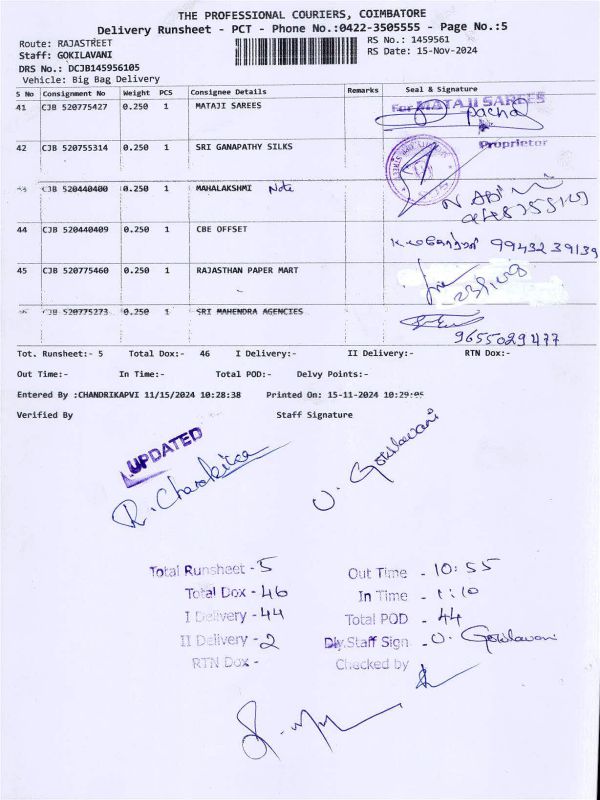 THE PROFESSIONAL COURIERS, COIMBATORE
Delivery Runsheet - PCT - Phone No.:0422-3505555 - Page No.:5
Route: RAJASTREET
RS No.: 1459561
Staff: GOKILAVANI
RS Date: 15-Nov-2024
DRS No.: DCJB145956105
Vehicle: Big Bag Delivery
S No Consignment No Weight PCS Consignee Details Remarks Seal & Signature
41 CJB 520775427 0.250 1 MATAJI SAREES
For MATAJI SAREES
Proprietor
42 CJB 520755314 0.250 1 SRI GANAPATHY SILKS
43 CJB 520440400 0.250 1 MAHALAKSHMI Note
44 CJB 520440409 0.250 1 CBE OFFSET 99432 39139
45 CJB 520775460 0.250 1 RAJASTHAN PAPER MART
CJB 520775273 0.250 1 SRI MAHENDRA AGENCIES
9655029477
Tot. Runsheet:- 5 Total Dox:- 46 I Delivery:- II Delivery:- RTN Dox:-
Out Time:- In Time:- Total POD:- Delvy Points:-
Entered By :CHANDRIKAPVI 11/15/2024 10:28:38 Printed On: 15-11-2024 10:29:05
Verified By Staff Signature
UPDATED
R. Chandrika
V. Gokilavani
Total Runsheet - 5
Out Time - 10:55
Total Dox - 46
In Time - 1:10
I Delivery - 44
Total POD - 44
II Delivery - 2
Dly.Staff Sign - V. Gokilavani
RTN Dox -
Checked by